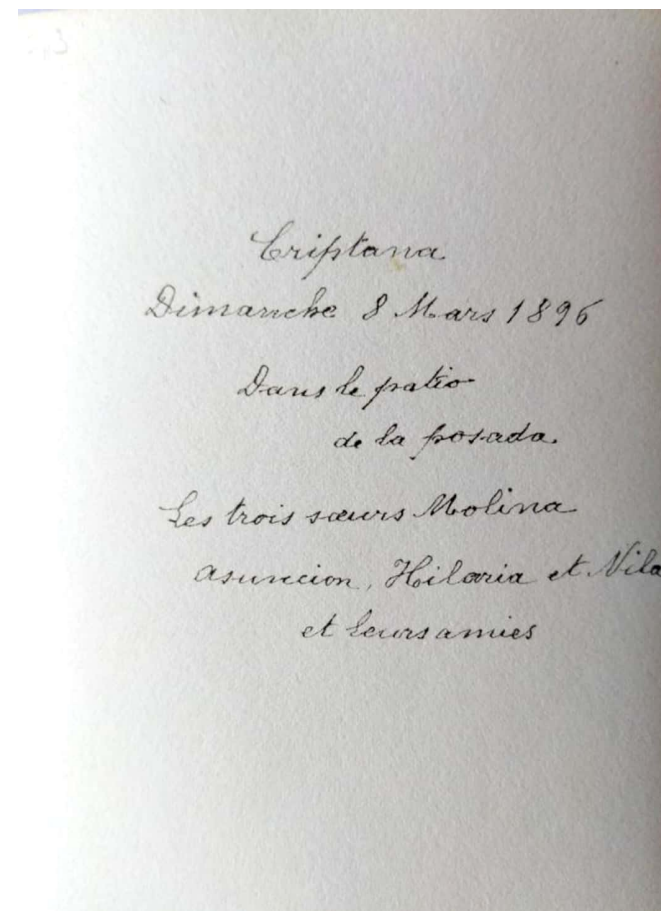 Criptana
Dimanche 8 Mars 1896
Dans le patio
de la posada.
Les trois sœurs Molina
Asuncion, Hilaria et Nila
et leurs amies